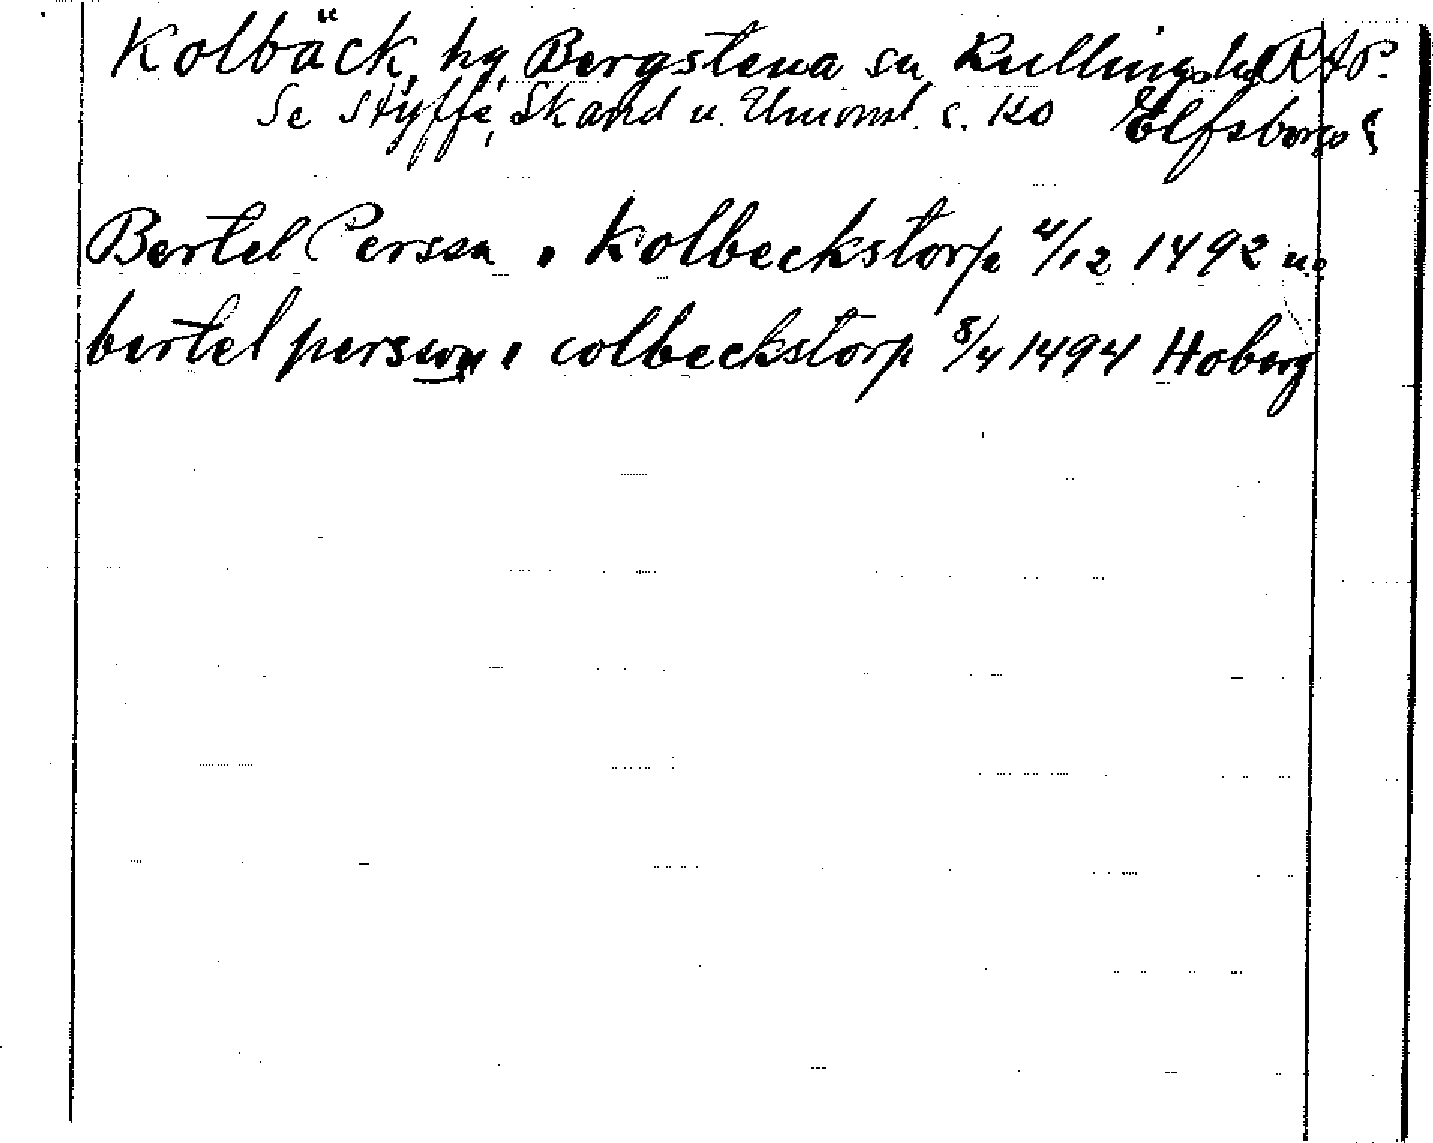 Kolbäck, hg, Bergstena sn, Kullings hd RAP.
Se Styffe, Skand u. Unionst. s. 120 Elfsborgs l
Bertel Persson i Kolbeckstorp 4/12 1492 u.o
bertel persson i colbeckstorp 8/4 1494 Hoberg